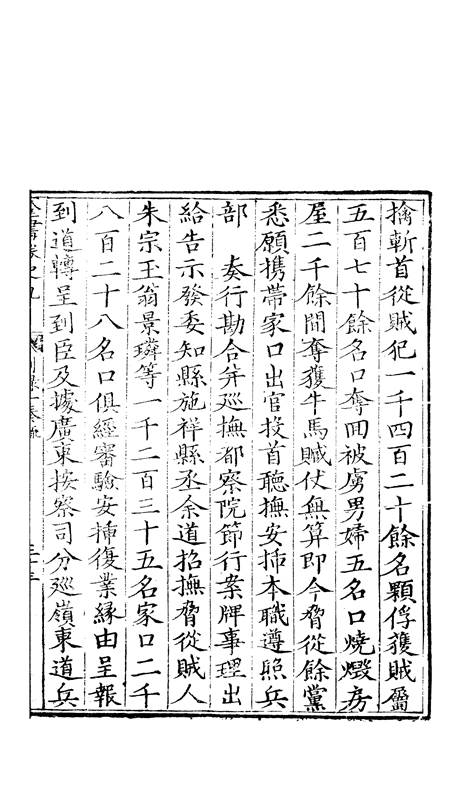 擒斬首從賊犯一千四百二十餘名顆俘獲賊屬
五百七十餘名口奪囬被虜男婦五名口燒燬房
屋二千餘間奪獲牛馬賍仗無算即今脅從餘黨
悉願携帶家口出官投首聽撫安揷本職遵照兵
部　奏行勘合并巡撫都察院節行案牌事理出
給告示發委知縣施祥縣丞余道招撫脅從賊人
朱宗玉翁景璘等一千二百三十五名家口二千
八百二十八名口俱經審驗安揷復業緣由呈報
到道轉呈到臣及據廣東按察司分巡嶺東道兵
全書卷之九